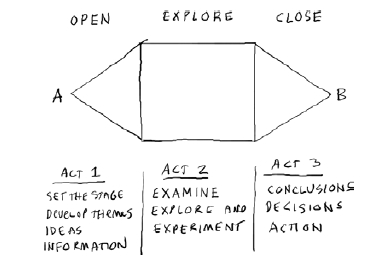 OPEN EXPLORE CLOSE
A B
ACT 1
SET THE STAGE
DEVELOP THEMES
IDEAS
INFORMATION
ACT 2
EXAMINE
EXPLORE AND
EXPERIMENT
ACT 3
CONCLUSIONS
DECISIONS
ACTION